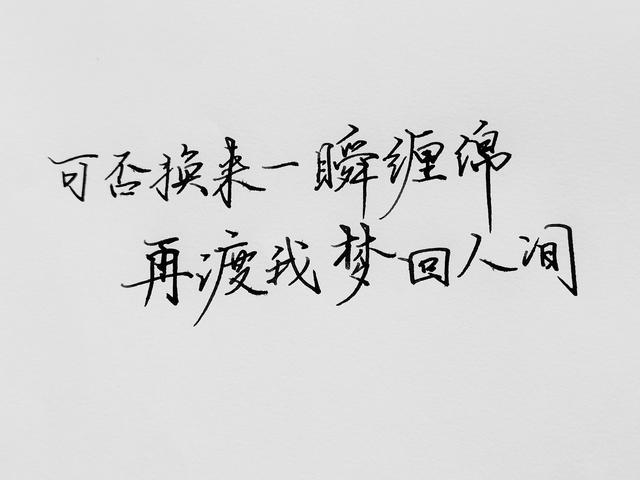 可否换来一瞬缠绵
再渡我梦回人间